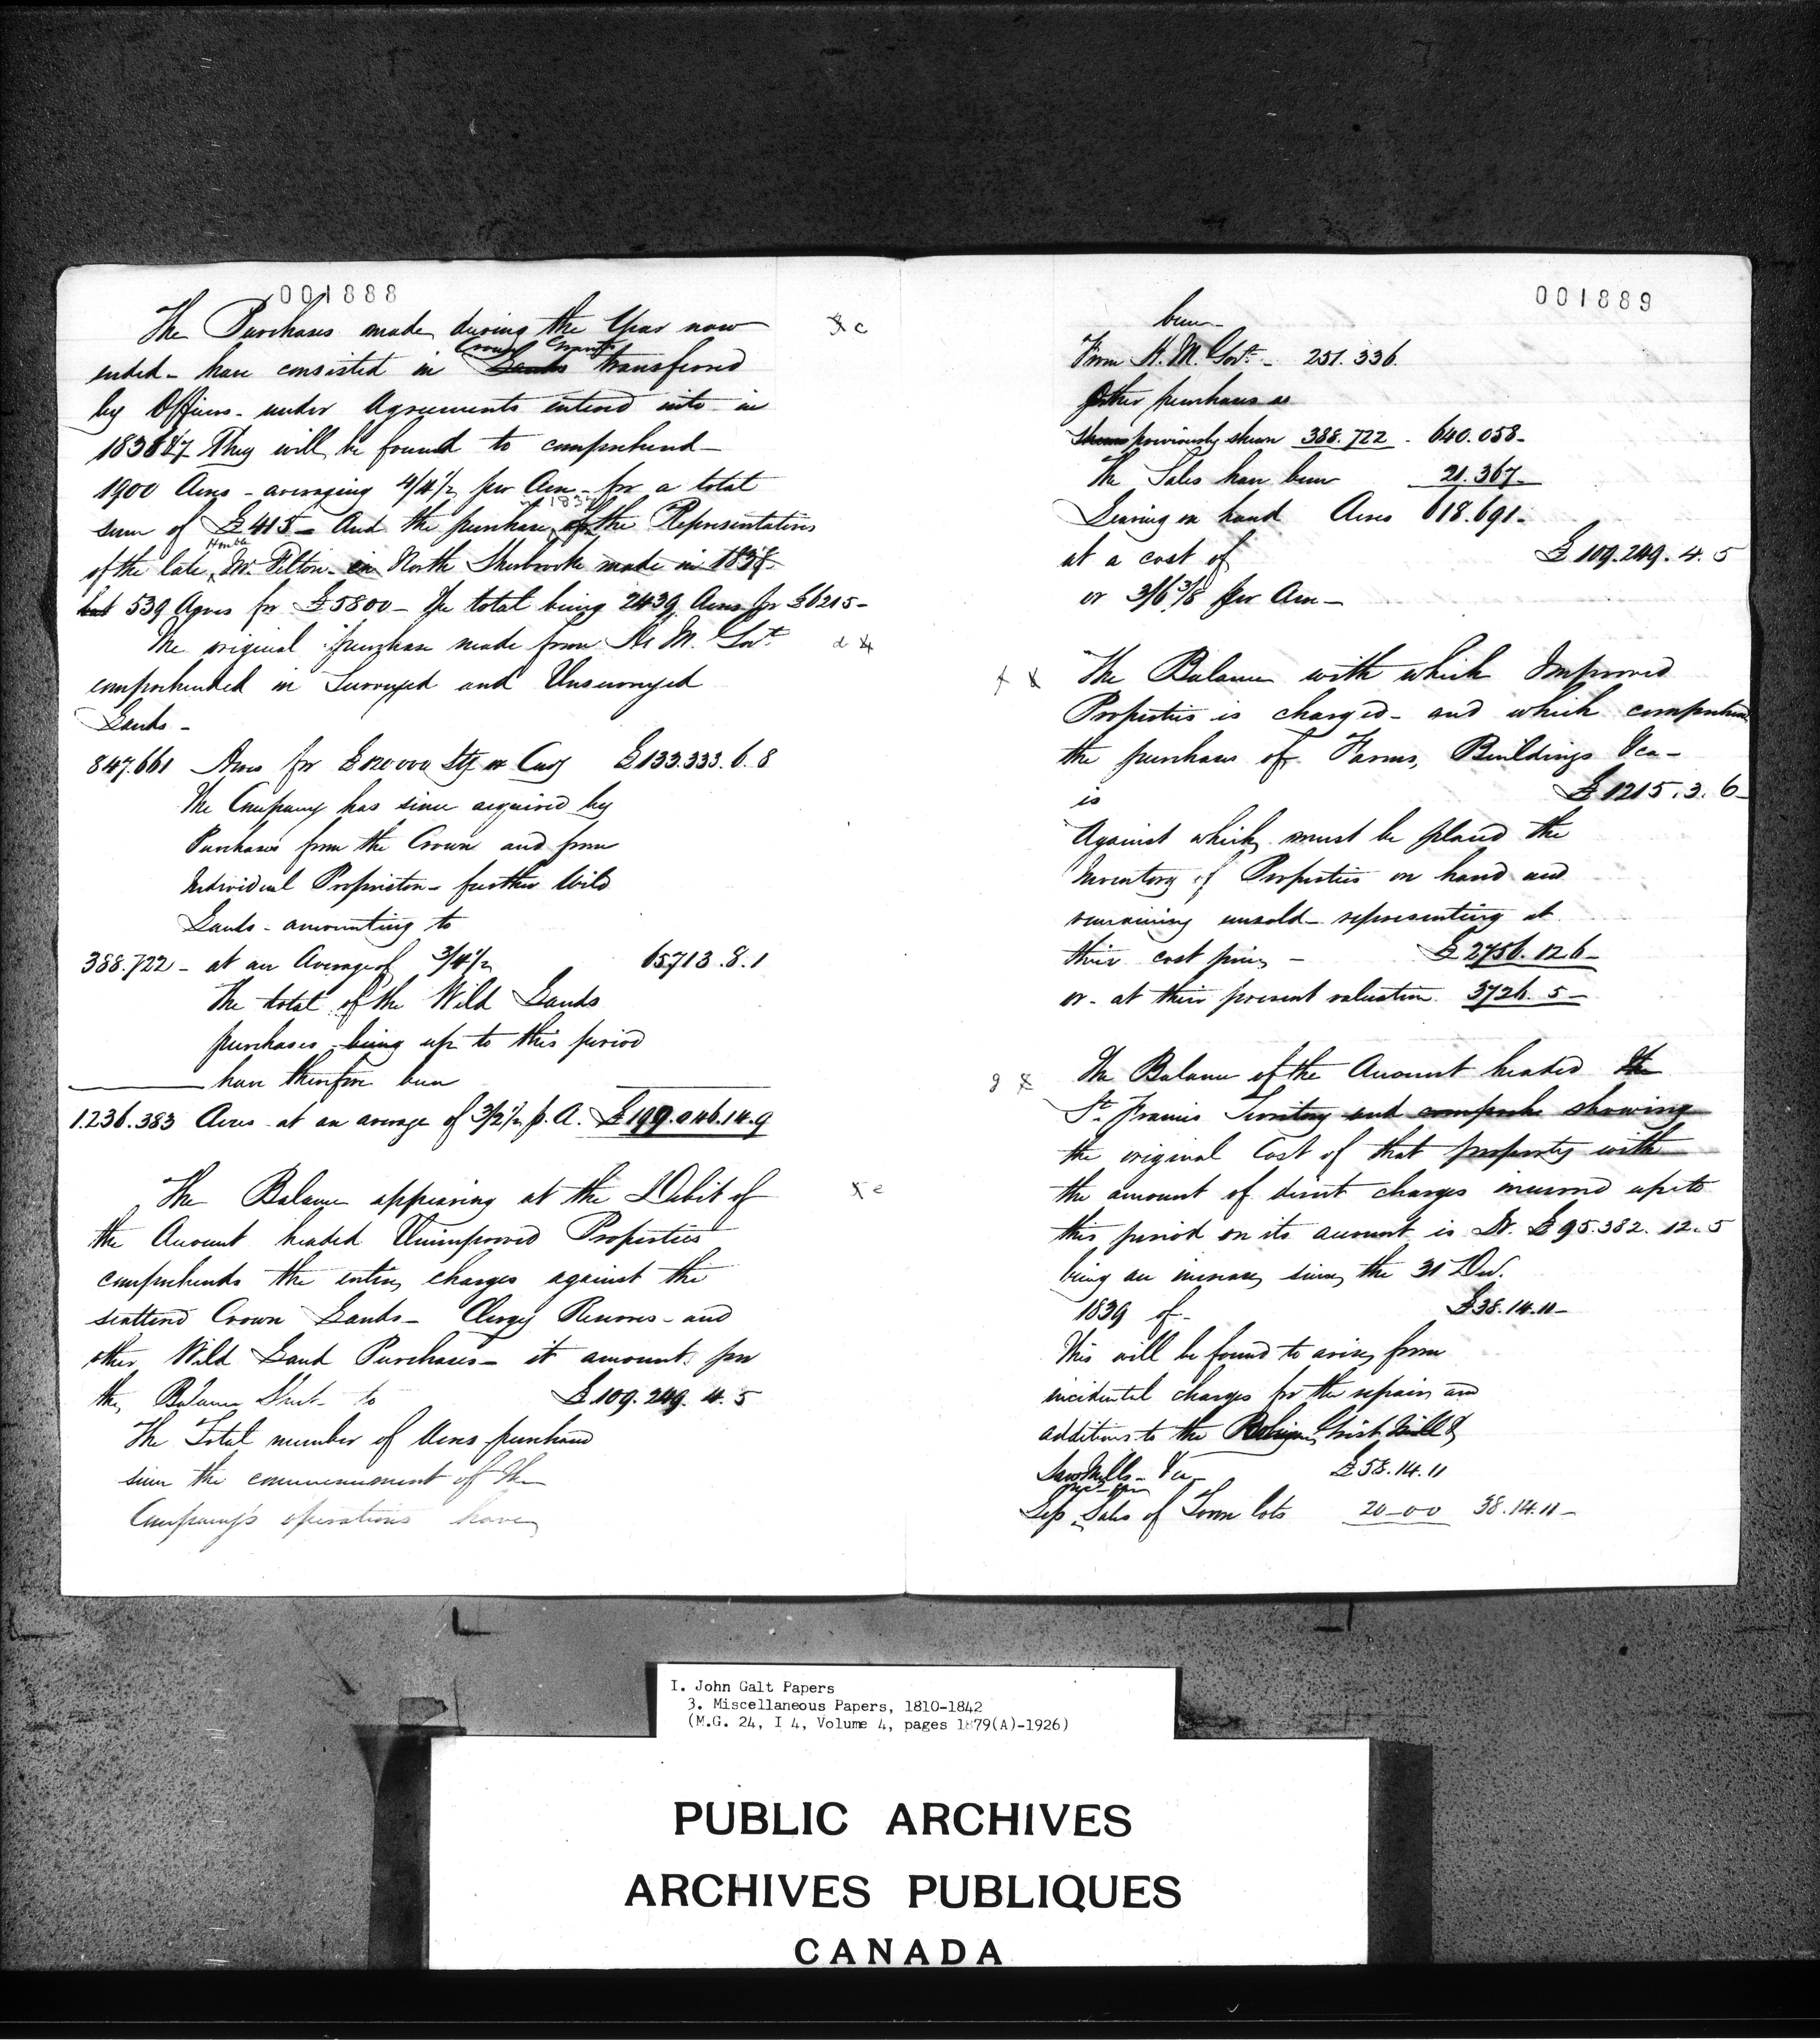 001888
The Purchases made during the Year now
x c
ended - have consisted in Crown Grants transferred
by Officers - under Agreements entered into in
1836 & 7 They will be found to comprehend -
1900 Acres - averaging 4/4½ per Acre - for a total
sum of £415 - And the purchase of the Representatives
of the late Honble Mr. Felton - in North Sherbrooke made in 1838
539 Acres for £5800 - the total being 2439 Acres for £6215 -
The original purchase made from H. M. Govt
d x
comprehended in Surveyed and Unsurveyed
Lands -
847.661 Acres for £120000 Stg or Cury £133.333.6.8
The Company has since acquired by
Purchases from the Crown and from
Individual Proprietors - further Wild
Lands - amounting to
388.722 - at an Average of 3/4½ 65713.8.1
The total of the Wild Lands
purchases being up to this period
have therefore been
1.236.383 Acres at an average of 3/2½ p. A. £199.046.14.9
The Balance appearing at the Debit of
x e
the Account headed Unimproved Properties
comprehends the entire charges against the
scattered Crown Lands - Clergy Reserves - and
other Wild Land Purchases - it amounts per
the Balance Sheet - to £109.249.4.5
The Total number of Acres purchased
since the commencement of the
Company's operations have
001889
been
From H. M. Govt - 251.336.
Other purchases as
previously shewn 388.722 - 640.058 -
The Sales have been 21.367 -
Leaving on hand Acres 618.691 -
at a cost of £109.249.4.5
or 3/6⅜ per Acre -
f x The Balance with which Improved
Properties is charged - and which comprehend
the purchase of Farms, Buildings &ca -
is £1215.3.6 -
Against which must be placed the
Inventory of Properties on hand and
remaining unsold - representing at
their cost price - £2756.12.6 -
or - at their present valuation 3726.5 -
g x The Balance of the Account headed the
St. Francis Territory and showing
the original Cost of that property with
the amount of direct charges incurred up to
this period on its account is Dr. £95.382.12.5
being an increase since the 31 Dec.
1839 of - £38.14.11 -
This will be found to arise from
incidental charges for the repairs and
additions to the Grist Mill &
Saw Mills - &ca - £58.14.11
Less Sales of Town lots 20-00 38.14.11 -
I. John Galt Papers
3. Miscellaneous Papers, 1810-1842
(M.G. 24, I 4, Volume 4, pages 1879(A)-1926)
PUBLIC ARCHIVES
ARCHIVES PUBLIQUES
CANADA